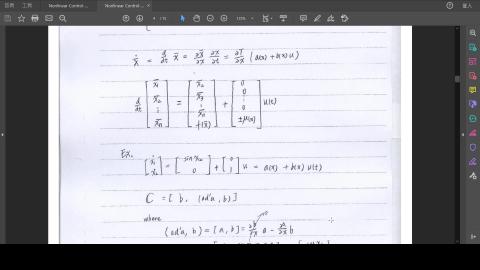 主页 工具 Nonlinear Control ... Nonlinear Control ... ×
4 / 15
登入
ẋ̄ = d/dt x̄ = ∂x̄/∂x ∂x/∂t = ∂T/∂x (a(x) + b(x) u)
d/dt [x̄1 x̄2 ⋮ x̄n] = [x̄2 x̄3 ⋮ x̄n f(x̄)] + [0 0 ⋮ 0 ±μ(x)] u(t)
Ex.
[ẋ1 ẋ2] = [sin x2 0] + [0 1] u = a(x) + b(x) u(t)
C = [ b, (ad'a, b) ]
where
(ad'a, b) = [a, b] = ∂b/∂x a - ∂a/∂x b